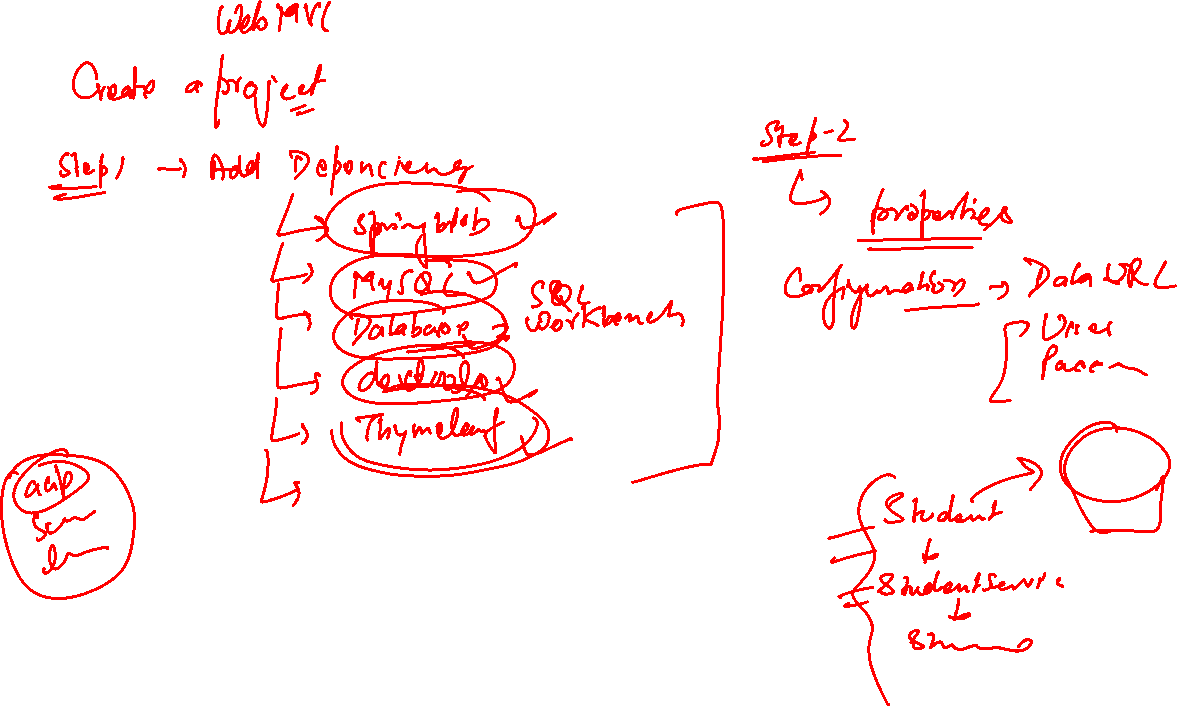 Web MVC
Create a project
Step 1 → Add Depenciency
Spring Web
MySQL
Database
SQL
Workbench
devtools
Thymeleaf
Step-2
properties
Configuration → Data URL
User
Student
StudentService